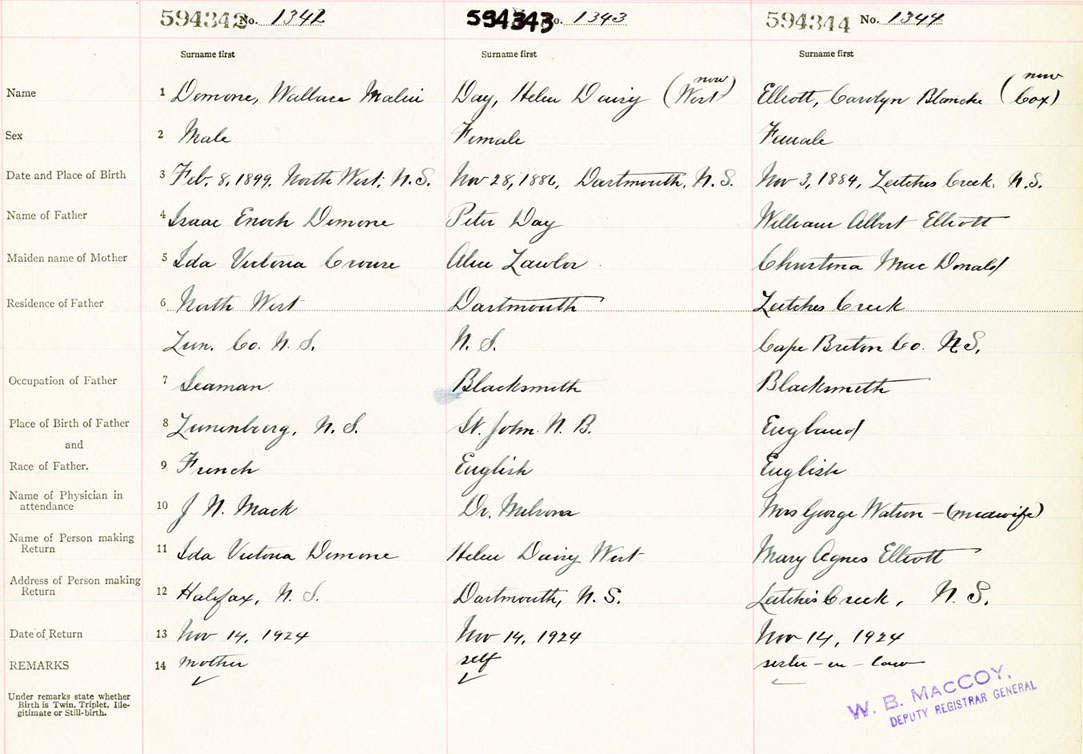 594342 No. 1342 594343 No. 1343 594344 No. 1344
Surname first Surname first Surname first
Name 1 Demone, Wallace Day, Helen Daisy (now West) Elliott, Carolyn Blanche (now Cox)
Sex 2 Male Female Female
Date and Place of Birth 3 Feb. 8, 1899, North West, N.S. Nov 28, 1886, Dartmouth, N.S. Nov 3, 1884, Leitches Creek, N.S.
Name of Father 4 Isaac Enoch Demone Peter Day William Albert Elliott
Maiden name of Mother 5 Ida Victoria Crouse Alice Lawlor Christina Mac Donald
Residence of Father 6 North West Dartmouth Leitches Creek
Lun. Co. N.S. N.S. Cape Breton Co. N.S.
Occupation of Father 7 Seaman Blacksmith Blacksmith
Place of Birth of Father 8 Lunenburg, N.S. St. John N.B. England
and
Race of Father. 9 French English English
Name of Physician in
attendance 10 J N. Mack Dr. Mrs George Watson - (midwife)
Name of Person making
Return 11 Ida Victoria Demone Helen Daisy West Mary Agnes Elliott
Address of Person making
Return 12 Halifax, N.S. Dartmouth, N.S. Leitches Creek, N.S.
Date of Return 13 Nov 14, 1924 Nov 14, 1924 Nov 14, 1924
REMARKS 14 mother self sister-in-law
Under remarks state whether
Birth is Twin, Triplet, Ille-
gitimate or Still-birth.
W. B. MACCOY,
DEPUTY REGISTRAR GENERAL